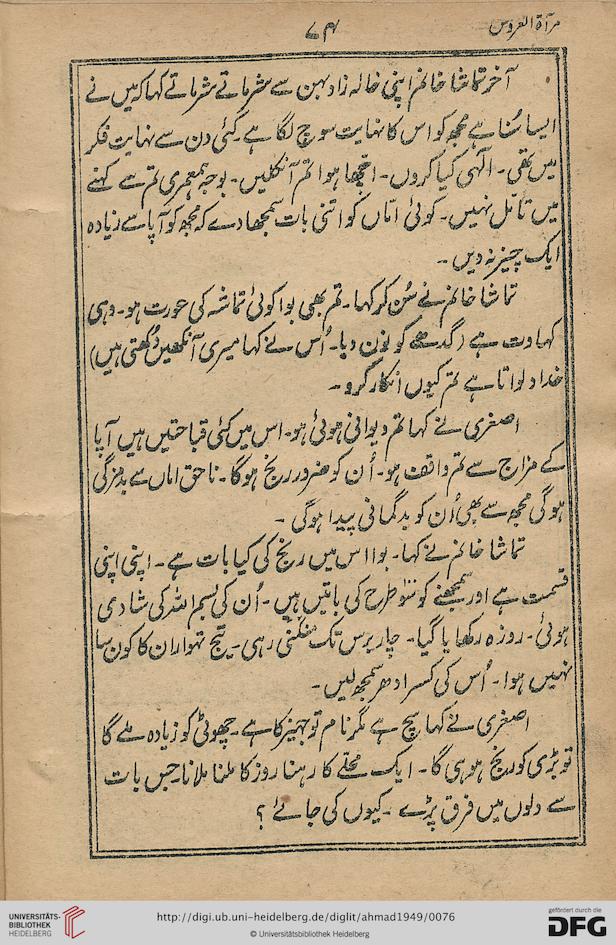 مرآۃ العروس
۷۴
آخر تماشا خانم اپنی خالہ زاد بہن سے شرماتے شرماتے کہا کہ میں نے
ایسا سُنا ہے مجھ کو اس کا نہایت سوچ لگا ہے ۔ کئی دن سے نہایت فکر
میں تھی ۔ الٰہی کیا کروں ۔ اچّھا ہوا تم آنکلیں ۔ بوجہ ہمعمری تم سے کہنے
میں تامّل نہیں ۔ کوئی امّاں کو اتنی بات سمجھا دے کہ مجھ کو آپا سے زیادہ
ایک چیز نہ دیں ۔
تماشا خانم نے سُن کر کہا ۔ تم بھی بوا کوئی تماشہ کی عورت ہو ۔ وہی
کہاوت ہے (گدھے کو نون دیا ۔ اُس نے کہا میری آنکھیں دُکھتی ہیں)
خدا دلواتا ہے تم کیوں انکار کرو ۔
اصغری نے کہا تم دیوانی ہوئی ہو ۔ اس میں کئی قباحتیں ہیں آپا
کے مزاج سے تم واقف ہو ۔ اُن کو ضرور رنج ہوگا ۔ ناحق اماں سے بدمزگی
ہوگی مجھ سے بھی اُن کو بدگمانی پیدا ہوگی ۔
تماشا خانم نے کہا ۔ بوا اس میں رنج کی کیا بات ہے ۔ اپنی اپنی
قسمت ہے اور سمجھنے کو سَو طرح کی باتیں ہیں ۔ اُن کی بسم اللہ کی شادی
ہوئی ۔ روزہ رکھایا گیا ۔ چار برس تک منگنی رہی ۔ تیج تہوار ان کا کون سا
نہیں ہوا ۔ اُس کی کسر ادھر سمجھ لیں ۔
اصغری نے کہا سچ ہے مگر نام تو جہیز کا ہے ۔ چھوٹی کو زیادہ ملے گا
تو بڑی کو رنج ہو ہی گا ۔ ایک محلے کا رہنا روز کا ملنا ملانا ۔ جس بات
سے دلوں میں فرق پڑے ۔ کیوں کی جائے ؟
UNIVERSITÄTS-
BIBLIOTHEK
HEIDELBERG
http://digi.ub.uni-heidelberg.de/diglit/ahmad1949/0076
© Universitätsbibliothek Heidelberg
gefördert durch die
DFG